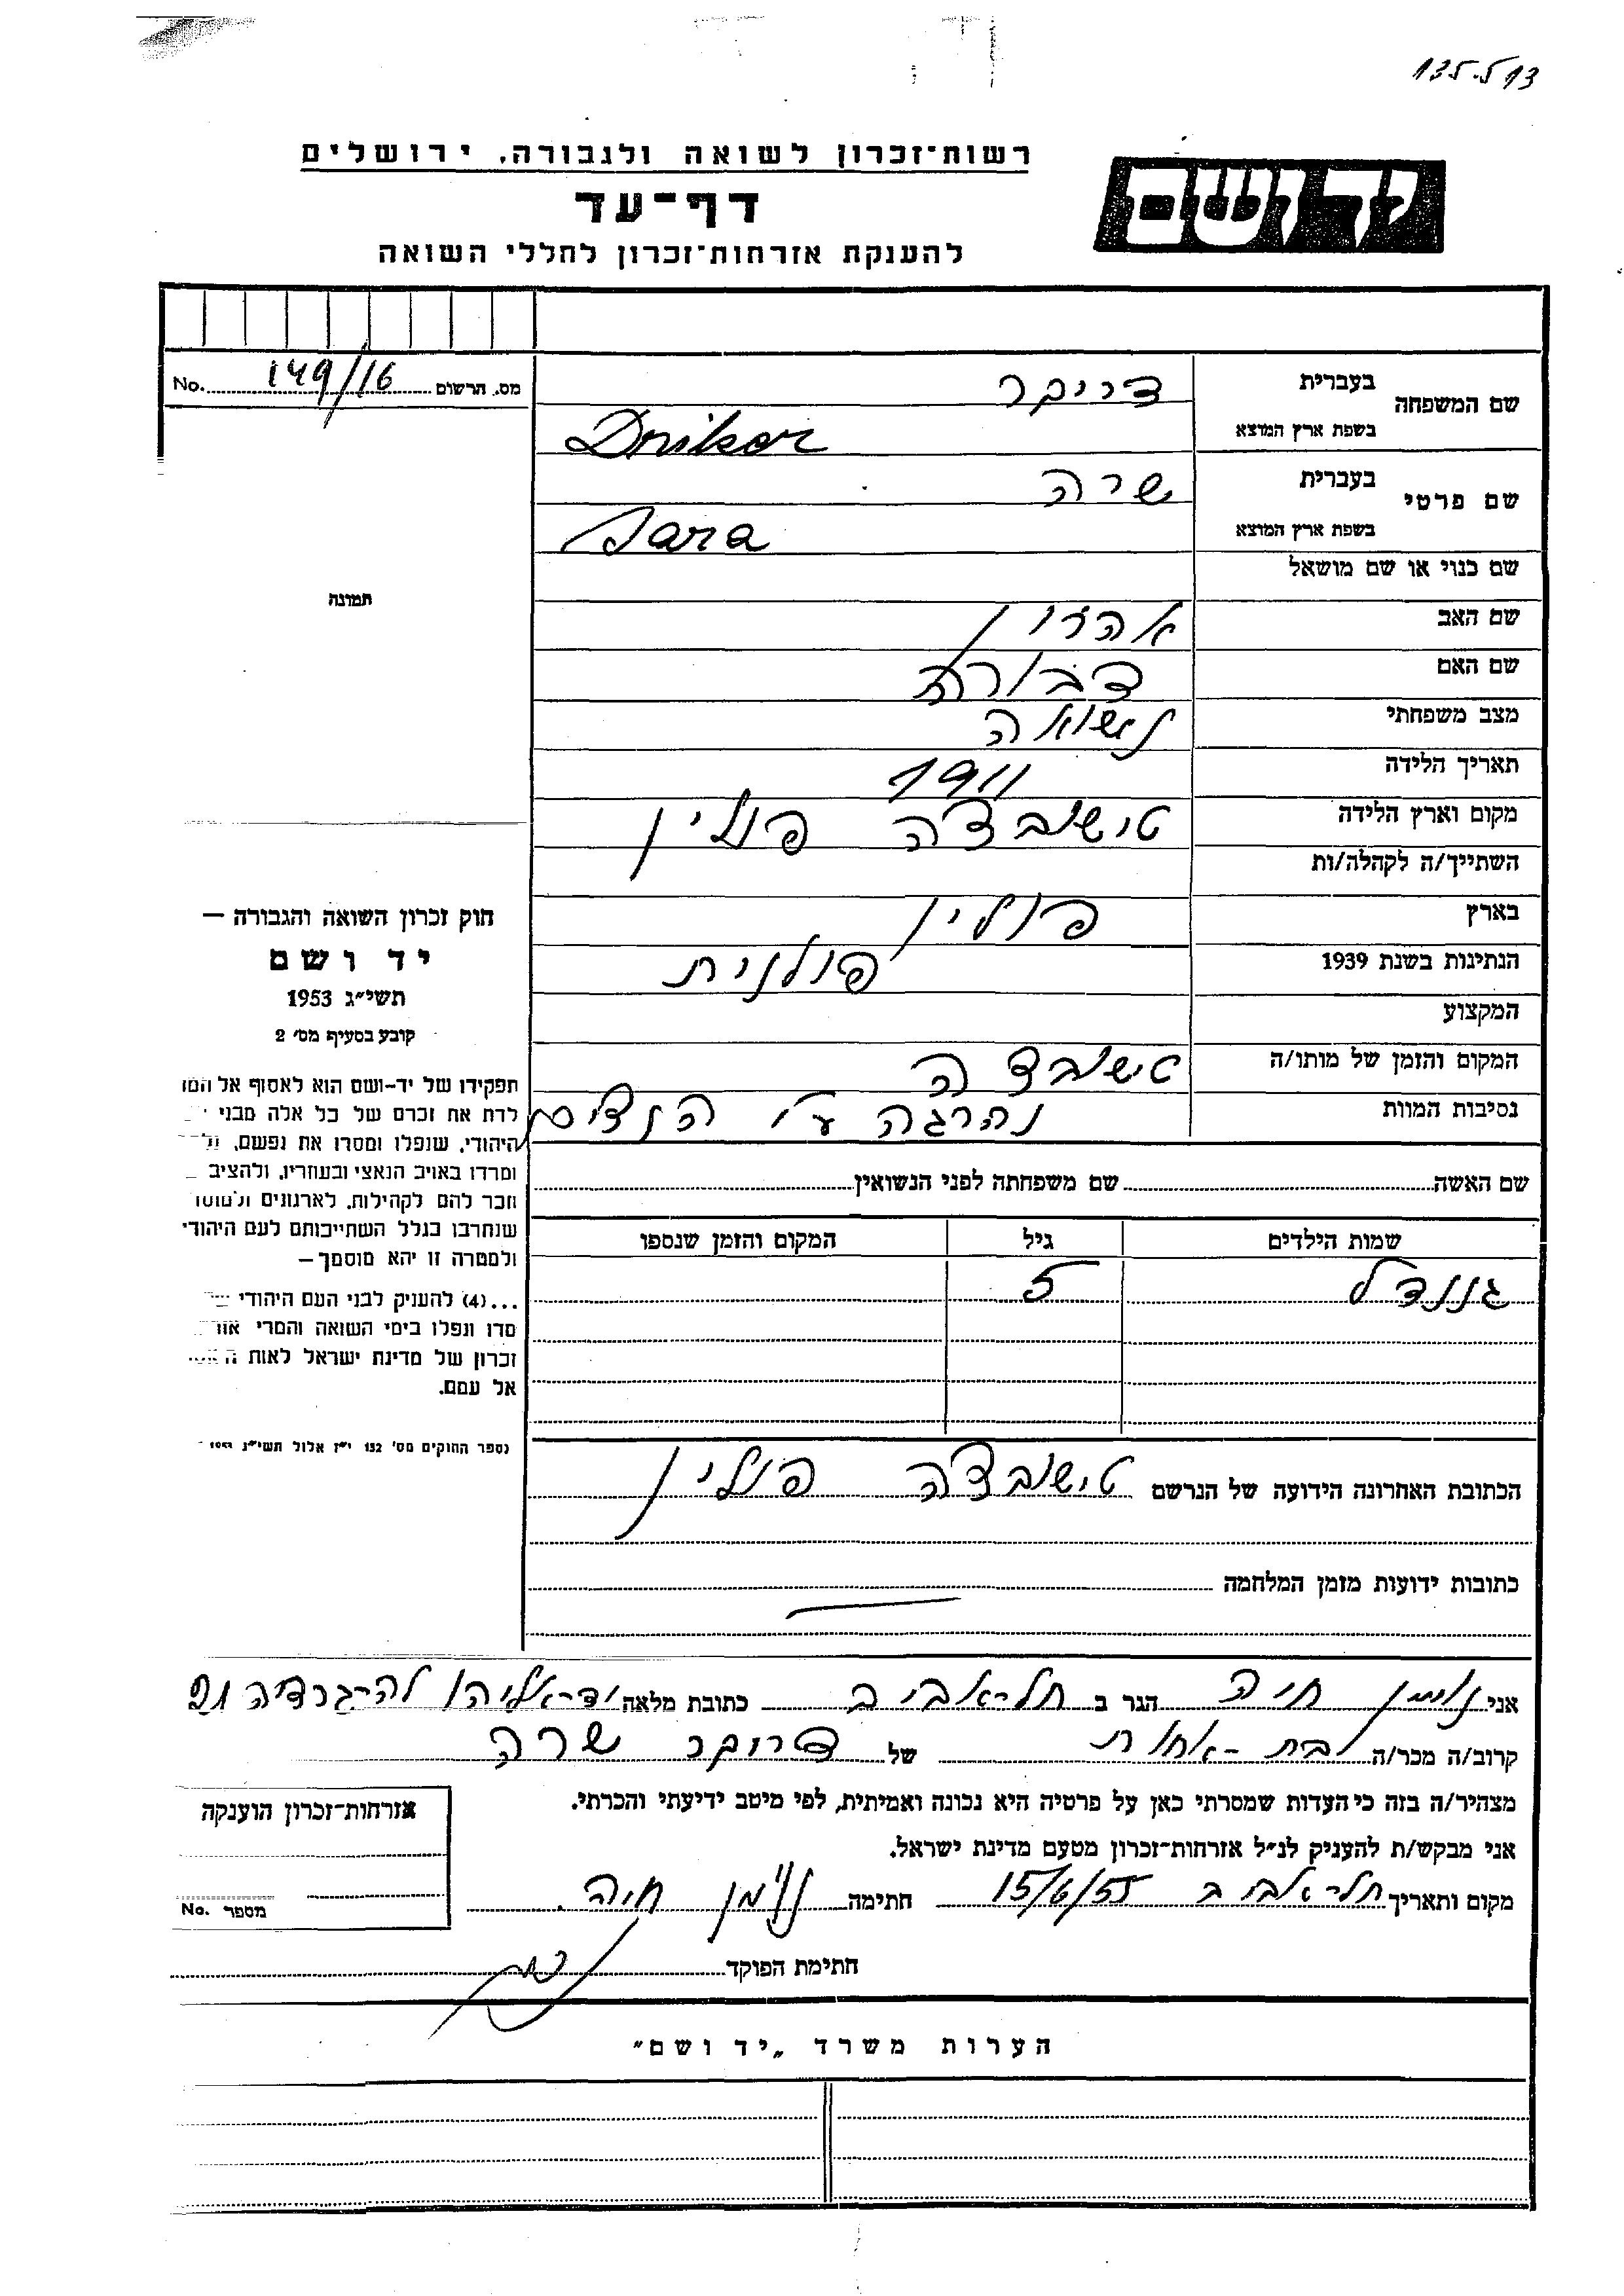 רשות־זכרון לשואה ולגבורה, ירושלים
יד ושם
דף־עד
להענקת אזרחות־זכרון לחללי השואה
מס. הרשום 149/16 No.
שם המשפחה בעברית דריקר
בשפת ארץ המוצא Driker
שם פרטי בעברית שרה
בשפת ארץ המוצא Sara
שם כנוי או שם מושאל
תמונה
שם האב אהרון
שם האם דבורה
מצב משפחתי נשואה
תאריך הלידה 1911
מקום וארץ הלידה טישובצה פולין
השתייך/ה לקהלה/ות
בארץ פולין
הנתינות בשנת 1939 פולנית
המקצוע
המקום והזמן של מותו/ה טישובצה
נסיבות המוות נהרגה ע"י הנצים
חוק זכרון השואה והגבורה —
יד ושם
תשי״ג 1953
קובע בסעיף מס׳ 2
תפקידו של יד-ושם הוא לאסוף אל המו
לדת את זכרם של כל אלה מבני
היהודי, שנפלו ומסרו את נפשם,
ומרדו באויב הנאצי ובעוזריו, ולהציב
וזכר להם לקהילות, לארגונים
שנחרבו בגלל השתייכותם לעם היהודי
ולמטרה זו יהא מוסמך—
...(4) להעניק לבני העם היהודי
מדו ונפלו בימי השואה והמרי
זכרון של מדינת ישראל לאות
אל עמם.
נספר החוקים מס׳ 132 י״ז אלול תשי״ג
שם האשה שם משפחתה לפני הנשואין
שמות הילדים גיל המקום והזמן שנספו
גנדל 5
הכתובת האחרונה הידועה של הנרשם טישובצה פולין
כתובות ידועות מזמן המלחמה
אני נוימן חיה הגר ב תל-אביב כתובת מלאה יד-אליהו לה-גרדיה
קרוב/ה מכר/ה בת-אחות של דריקר שרה
מצהיר/ה בזה כי העדות שמסרתי כאן על פרטיה היא נכונה ואמיתית, לפי מיטב ידיעתי והכרתי.
אני מבקש/ת להעניק לנ״ל אזרחות־זכרון מטעם מדינת ישראל.
מקום ותאריך תל-אביב 15/6/55 חתימה נוימן חיה.
חתימת הפוקד
אזרחות־זכרון הוענקה
מספר No.
הערות משרד „יד ושם״